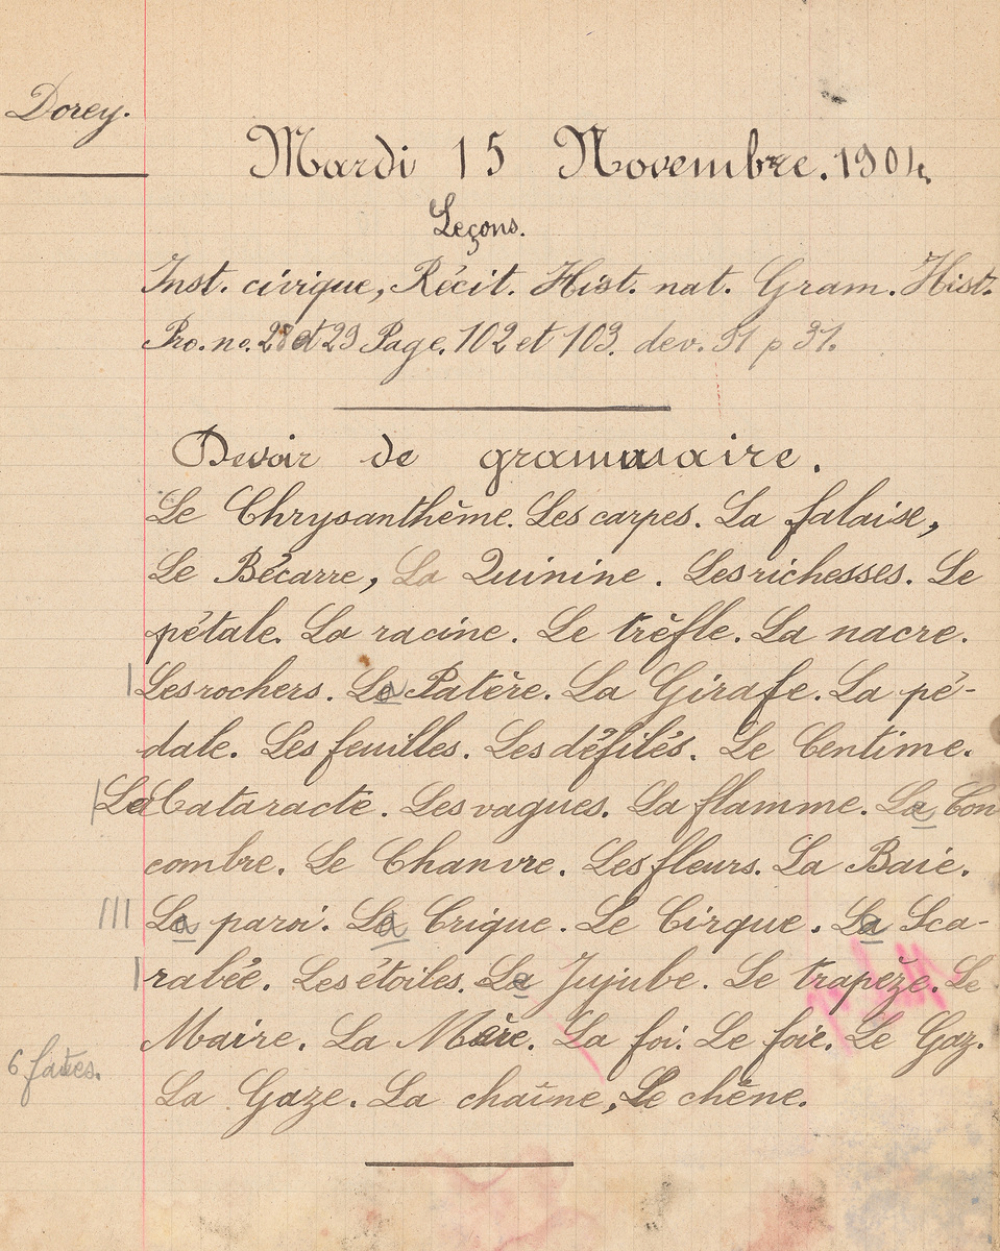 Dorey.
Mardi 15 Novembre. 1904
Leçons.
Inst. civique, Récit. Hist. nat. Gram. Hist.
Pro. no. 28 et 29 Page. 102 et 103. dev. 31 p 31.
Devoir de grammaire.
Le Chrysanthème. Les carpes. La falaise,
Le Bécarre, La Quinine. Les richesses. Le
pétale. La racine. Le trèfle. La nacre.
Les rochers. La Patère. La Girafe. La pé-
dale. Les feuilles. Les défilés. Le Centime.
La Cataracte. Les vagues. La flamme. Le Con
combre. Le Chanvre. Les fleurs. La Baie.
La paroi. La Crique. Le Cirque. Le Sca-
rabée. Les étoiles. Le Jujube. Le trapèze. Le
Maire. La Mère. La foi. Le foie. Le Gaz.
6 fautes.
La Gaze. La chaîne, Le chêne.